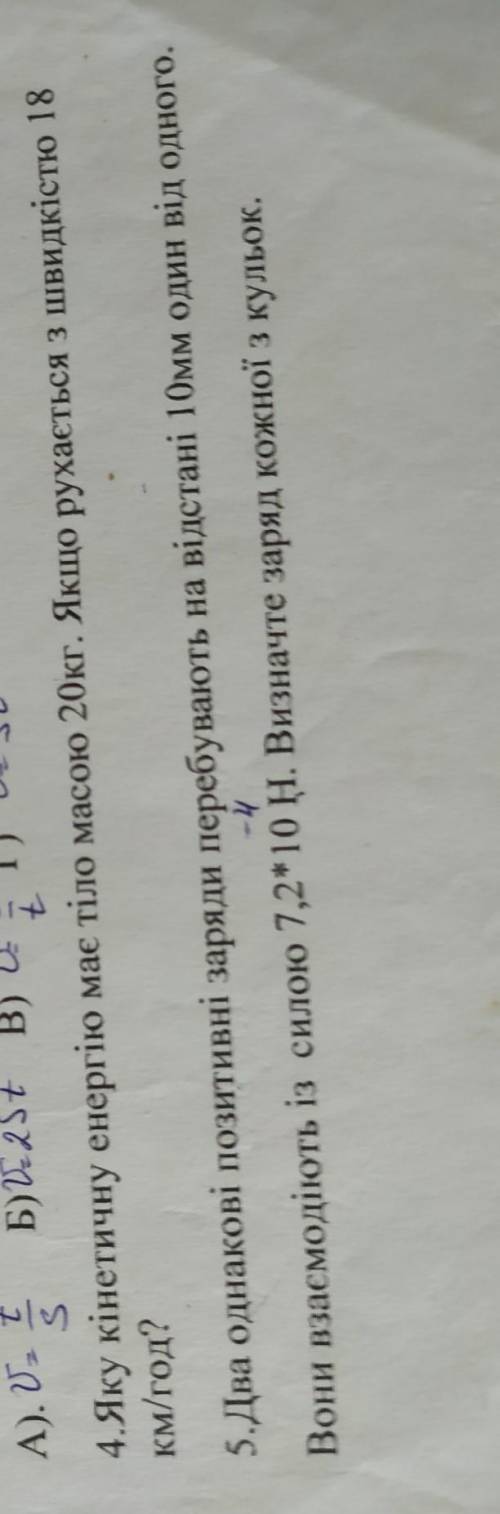 А). v = t/s Б) v = 2St В) v =
4.Яку кінетичну енергію має тіло масою 20кг. Якщо рухається з швидкістю 18
км/год?
5.Два однакові позитивні заряди перебувають на відстані 10мм один від одного.
Вони взаємодіють із силою 7,2*10⁻⁴ Н. Визначте заряд кожної з кульок.